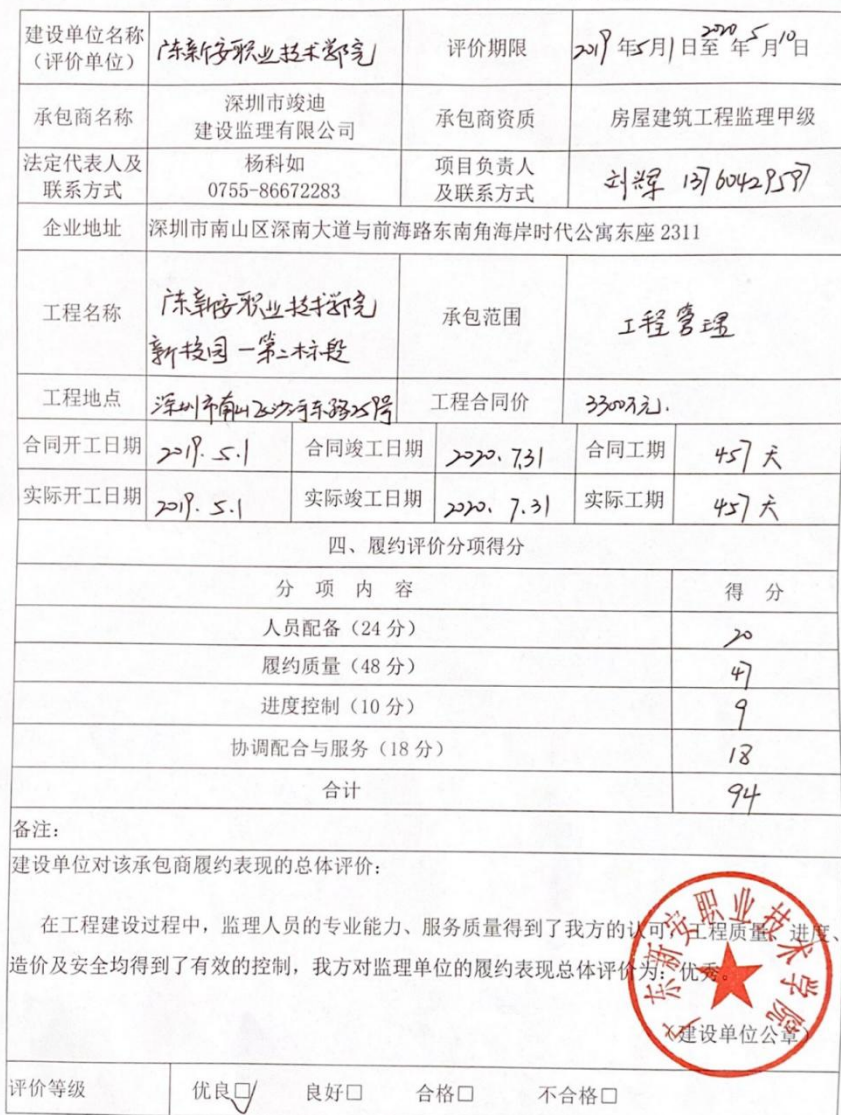 建设单位名称
（评价单位）
广东新安职业技术学院
评价期限
2019年5月1日至2020年5月10日
承包商名称
深圳市竣迪
建设监理有限公司
承包商资质
房屋建筑工程监理甲级
法定代表人及
联系方式
杨科如
0755-86672283
项目负责人
及联系方式
刘辉 13760429597
企业地址
深圳市南山区深南大道与前海路东南角海岸时代公寓东座 2311
工程名称
广东新安职业技术学院
新校园一第二标段
承包范围
工程管理
工程地点
深圳市南山区沙河东路259号
工程合同价
3300万元.
合同开工日期
2019.5.1
合同竣工日期
2020.7.31
合同工期
457天
实际开工日期
2019.5.1
实际竣工日期
2020.7.31
实际工期
457天
四、履约评价分项得分
分 项 内 容
得 分
人员配备（24 分）
20
履约质量（48 分）
47
进度控制（10 分）
9
协调配合与服务（18 分）
18
合计
94
备注：
建设单位对该承包商履约表现的总体评价：
在工程建设过程中，监理人员的专业能力、服务质量得到了我方的认可，工程质量、进度、
造价及安全均得到了有效的控制，我方对监理单位的履约表现总体评价为：优秀。
广东新安职业技术学院
（建设单位公章）
评价等级
优良□✓ 良好□ 合格□ 不合格□